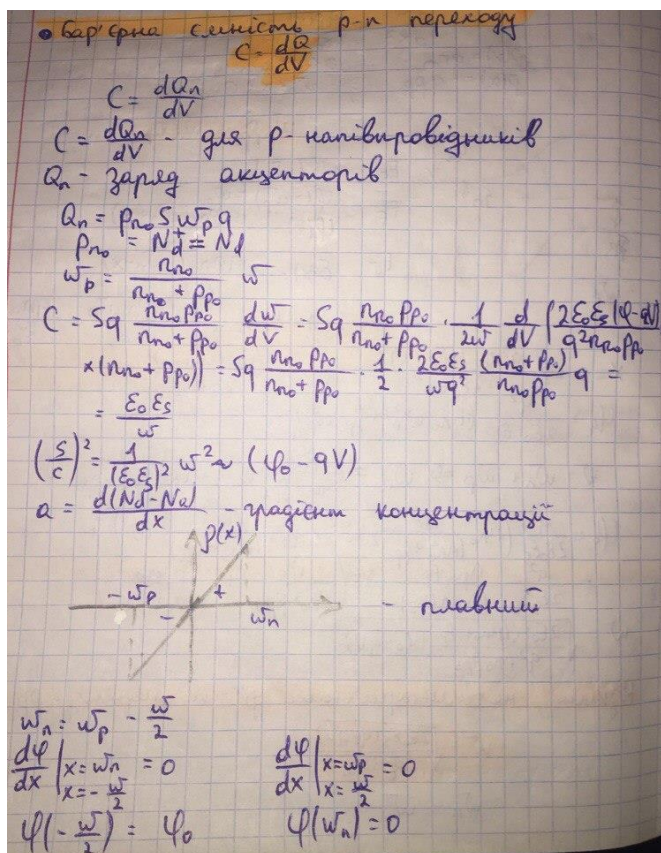 • Бар'єрна ємність p-n переходу
C = dQ/dV
C = dQn/dV
C = dQn/dV - для p-напівпровідників
Qn - заряд акцепторів
Qn = pn₀ S wp q
pn₀ = Nd⁺ = Nd
wp = nn₀/(nn₀ + pp₀) w
C = Sq nn₀pp₀/(nn₀ + pp₀) dw/dV = Sq nn₀pp₀/(nn₀ + pp₀) · 1/2w d/dV (2ε₀εs(φ-qV)/q²nn₀pp₀
×(nn₀ + pp₀)) = Sq nn₀pp₀/(nn₀ + pp₀) · 1/2 · 2ε₀εs/wq² (nn₀ + pp₀)/nn₀pp₀ q =
= ε₀εs/w
(S/C)² = 1/(ε₀εs)² w² ~ (φ₀ - qV)
a = d(Nd - Na)/dx - градієнт концентрації
ρ(x)
-wp + - wn - плавний
wn = wp - w/2
dφ/dx | x=wn x=-w/2 = 0 dφ/dx | x=wp x=w/2 = 0
φ(-w/2) = φ₀ φ(wn) = 0